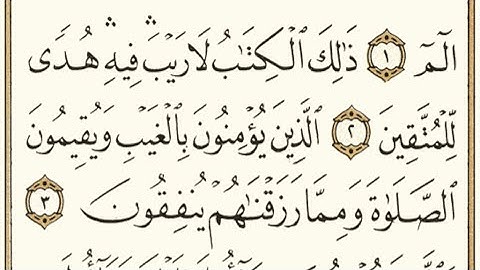 الٓمٓ ١ ذَٰلِكَ ٱلۡكِتَٰبُ لَا رَيۡبَۛ فِيهِۛ هُدٗى
لِّلۡمُتَّقِينَ ٢ ٱلَّذِينَ يُؤۡمِنُونَ بِٱلۡغَيۡبِ وَيُقِيمُونَ
ٱلصَّلَوٰةَ وَمِمَّا رَزَقۡنَٰهُمۡ يُنفِقُونَ ٣